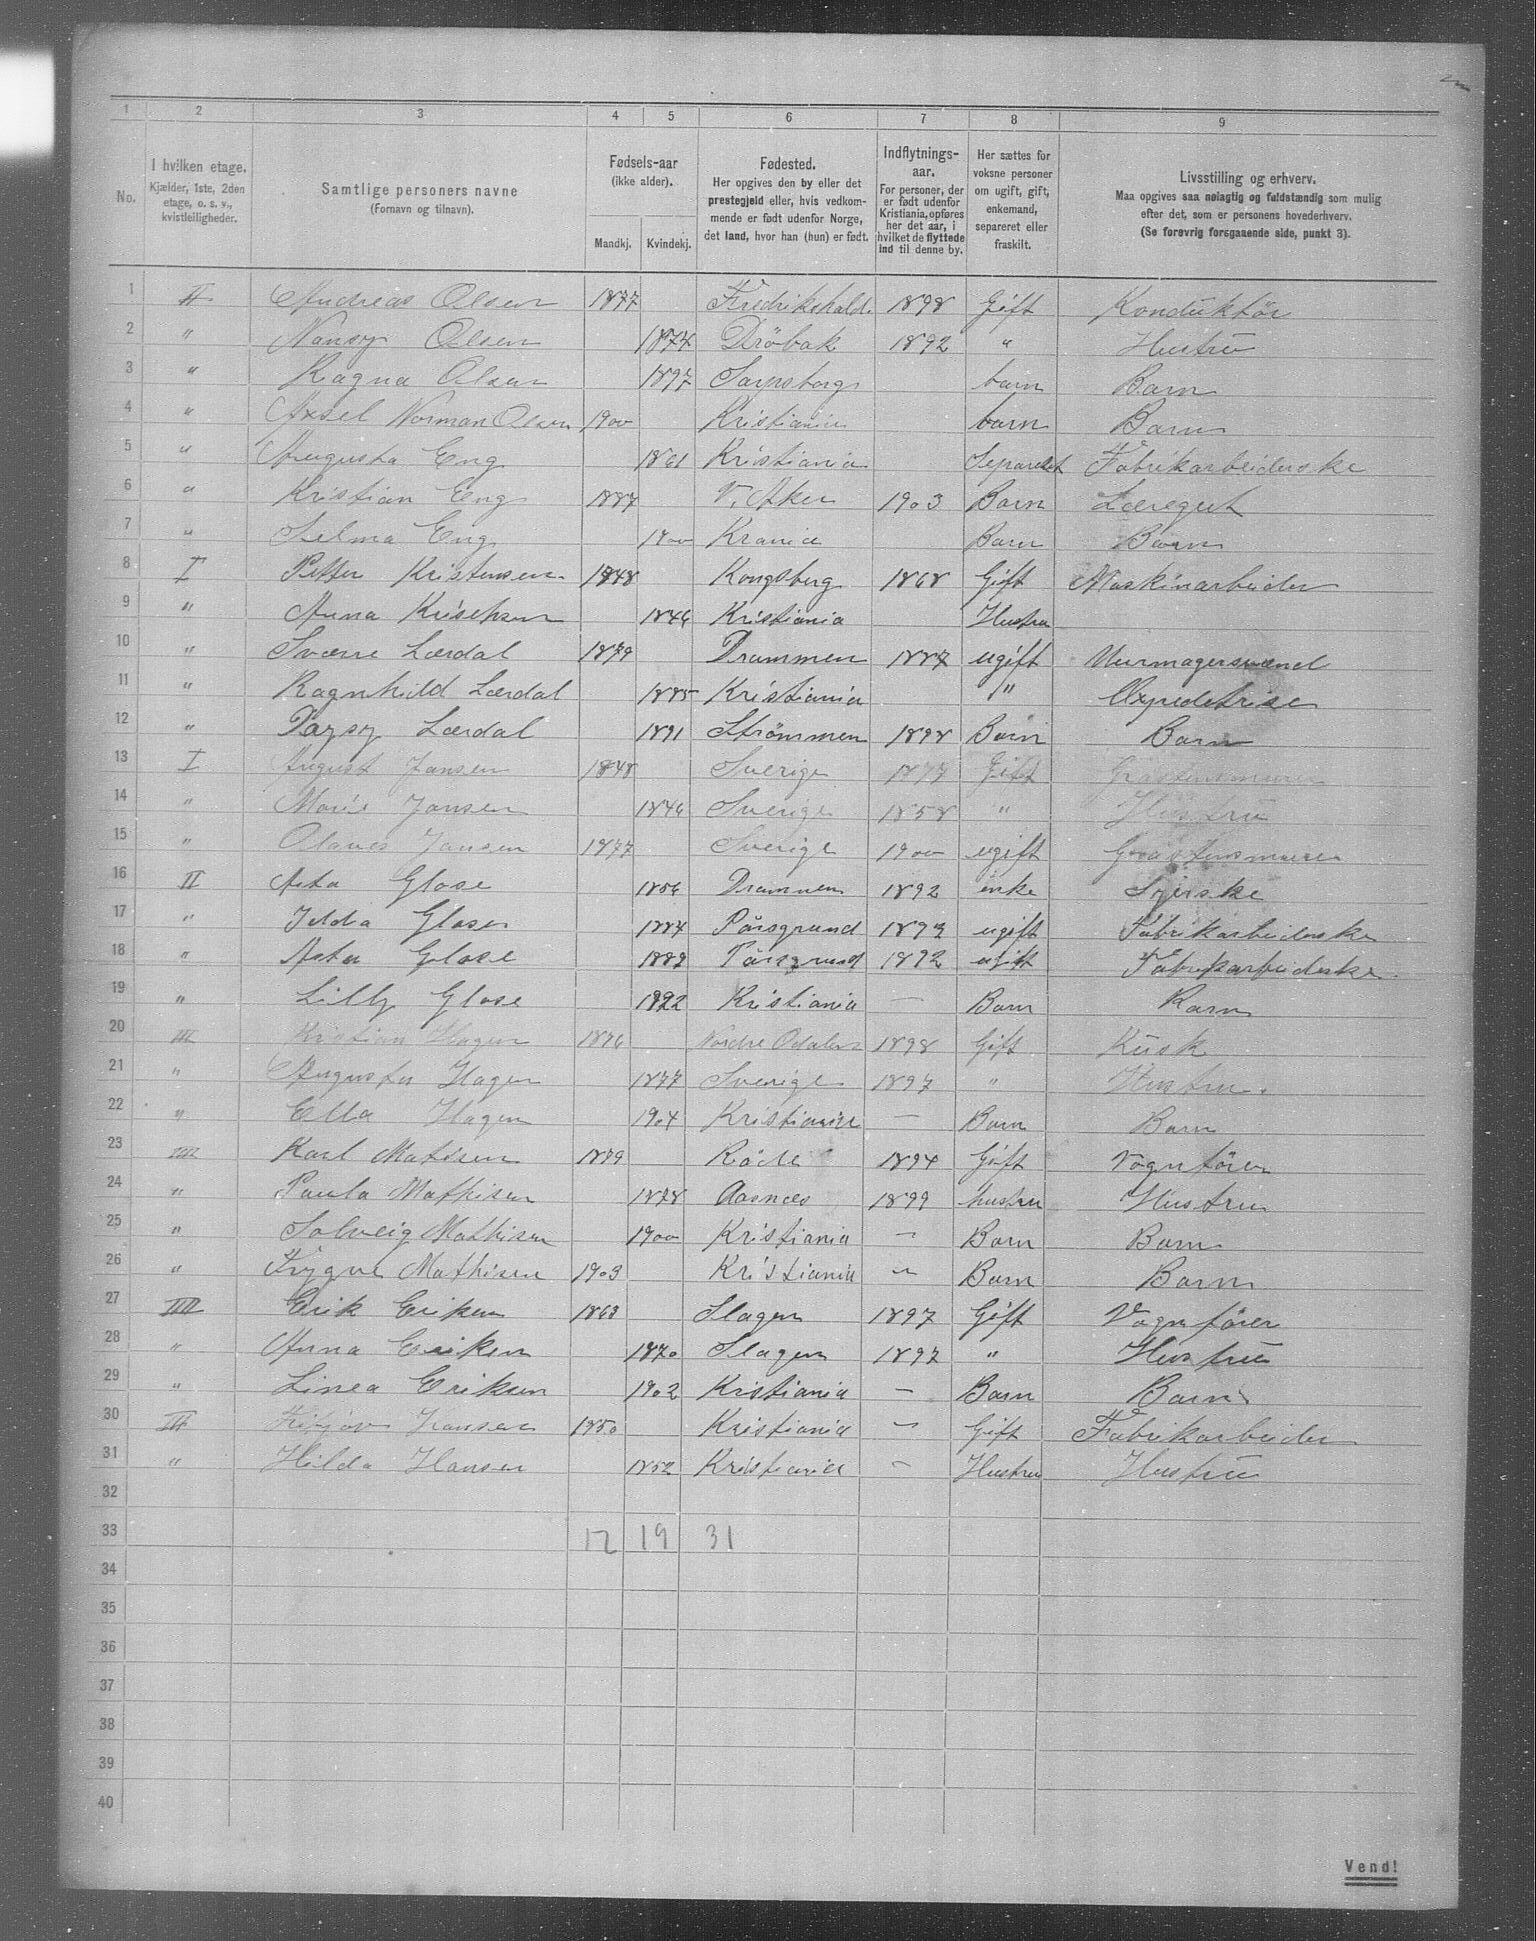 1 2 3 4 5 6 7 8 9
No.
I hvilken etage. Kjælder, 1ste, 2den etage, o. s. v., kvistleiligheder.
Samtlige personers navne (Fornavn og tilnavn).
Fødsels-aar (ikke alder).
Mandkj. Kvindekj.
Fødested. Her opgives den by eller det prestegjeld eller, hvis vedkommende er født udenfor Norge, det land, hvor han (hun) er født.
Indflytnings-aar. For personer, der er født udenfor Kristiania, opføres her det aar, i hvilket de flyttede ind til denne by.
Her sættes for voksne personer om ugift, gift, enkemand, separeret eller fraskilt.
Livsstilling og erhverv. Maa opgives saa nøiagtig og fuldstændig som mulig efter det, som er personens hovederhverv. (Se forøvrig foregaaende side, punkt 3).
1 II Andreas Olsen 1877 Fredrikshald 1898 Gift Konduktör
2 " Nansy Olsen 1874 Dröbak 1892 " Hustru
3 " Ragna Olsen 1897 Sarpsborg barn Barn
4 " Axsel Norman Olsen 1900 Kristiania barn Barn
5 " Augusta Eng 1861 Kristiania Separeret Fabrikarbeiderske
6 " Kristian Eng 1887 V. Aker 1903 Barn Læregut
7 " Selma Eng 1900 Krania Barn Barn
8 I Petter Kristensen 1848 Kongsberg 1868 Gift Maskinarbeider
9 " Anna 1846 Kristiania Hustru
10 " Sverre Lærdal 1879 Drammen 1887 ugift Uurmagersvend
11 " Ragnhild Lærdal 1885 Kristiania " Expedetrise
12 " Dagsy Lærdal 1891 Strömmen 1898 Barn Barn
13 I August Jansen 1848 Sverige 1877 Gift
14 " Marie Jansen 1846 Sverige 1858 " Hustru
15 " Olaves Jansen 1877 Sverige 1900 ugift
16 II Asta Glose 1856 Drammen 1892 enke Syerske
17 " Glose 1884 Pårsgrund 1892 ugift Fabrikarbeiderske
18 " Asta Glose 1889 Pårsgrund 1892 ugift Fabrikarbeideske
19 " Lilly Glose 1892 Kristiania — Barn Barn
20 III Kristian Hagen 1876 Nordre Odalen 1898 Gift Kusk
21 " Augusta Hagen 1877 Sverige 1897 " Hustru.
22 " Ella Hagen 1904 Kristiania — Barn Barn
23 III Karl Matisen 1879 Råde 1894 Gift Vognförer
24 " Paula Mathisen 1878 Aasnes 1899 hustru Hustru
25 " Solveig Mathisen 1900 Kristiania — Barn Barn
26 " Trygve Mathisen 1903 Kristiania — Barn Barn
27 IIII Erik Eriksen 1863 Slagen 1897 Gift Vognförer
28 " Anna Eriksen 1870 Slagen 1897 " Hustru
29 " Linea Eriksen 1902 Kristiania — Barn Barn
30 III Hansen 1850 Kristiania — Gift Fabrikarbeider
31 " Hilda Hansen 1852 Kristiania — Hustru Hustru
32
33 12 19 31
34
35
36
37
38
39
40
Vend!